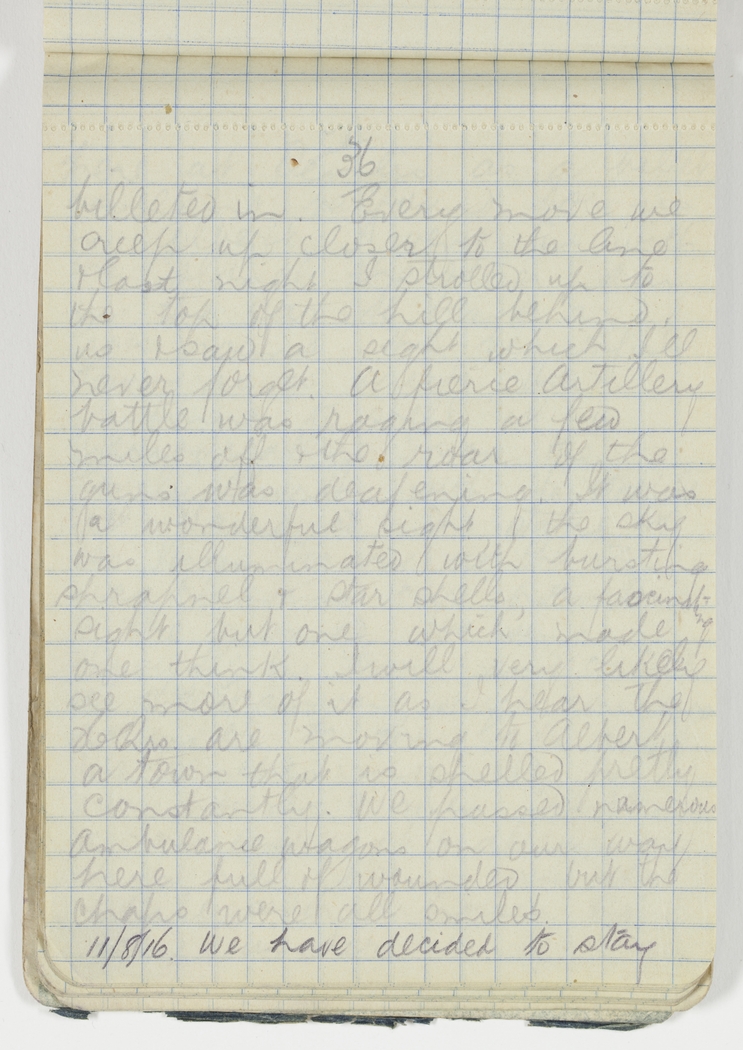 36
billeted in. Every move we
creep up closer to the line
& last night I strolled up to
the top of the hill behind
us & saw a sight which I'll
never forget. A fierce Artillery
battle was raging a few
miles off & the roar of the
guns was deafening. It was
a wonderful sight & the sky
was illuminated with bursting
shrapnel & star shells, a fascinat-
ing
sight but one which made
one think. I will very likely
see more of it as I hear the
are moving to Albert
a town that is shelled pretty
constantly. We passed numerous
ambulance wagons on our way
here full of wounded but the
chaps were all smiles.
11/8/16. We have decided to stay